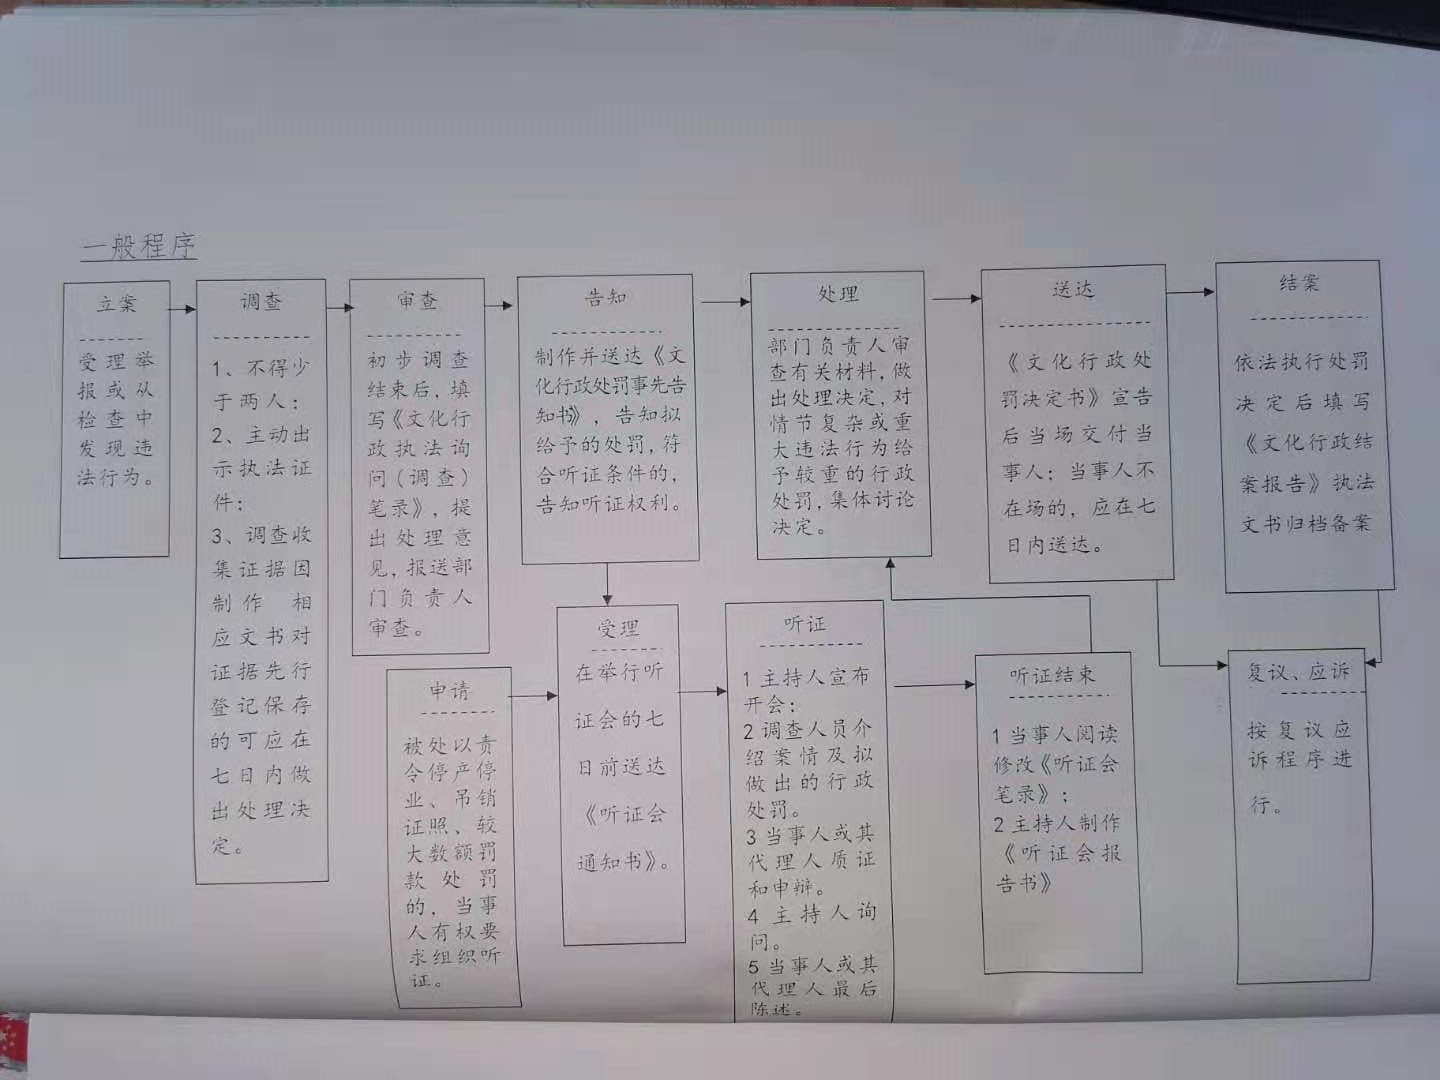 一般程序
立案
受理举
报或从
检查中
发现违
法行为。
调查
1、不得少
于两人；
2、主动出
示执法证
件；
3、调查收
集证据因
制作 相
应文书对
证据先行
登记保存
的可应在
七日内做
出处理决
定。
审查
初步调查
结束后，填
写《文化行
政执法询
问（调查）
笔录》，提
出处理意
见，报送部
门负责人
审查。
告知
制作并送达《文
化行政处罚事先告
知书》，告知拟
给予的处罚，符
合听证条件的，
告知听证权利。
处理
部门负责人审
查有关材料，做
出处理决定，对
情节复杂或重
大违法行为给
予较重的行政
处罚，集体讨论
决定。
送达
《文化行政处
罚决定书》宣告
后当场交付当
事人；当事人不
在场的，应在七
日内送达。
结案
依法执行处罚
决定后填写
《文化行政结
案报告》执法
文书归档备案
申请
被处以责
令停产停
业、吊销
证照、较
大数额罚
款处罚
的，当事
人有权要
求组织听
证。
受理
在举行听
证会的七
日前送达
《听证会
通知书》。
听证
1 主持人宣布
开会；
2 调查人员介
绍案情及拟
做出的行政
处罚。
3 当事人或其
代理人质证
和申辩。
4 主持人询
问。
5 当事人或其
代理人最后
陈述。
听证结束
1 当事人阅读
修改《听证会
笔录》；
2 主持人制作
《听证会报
告书》
复议、应诉
按复议应
诉程序进
行。